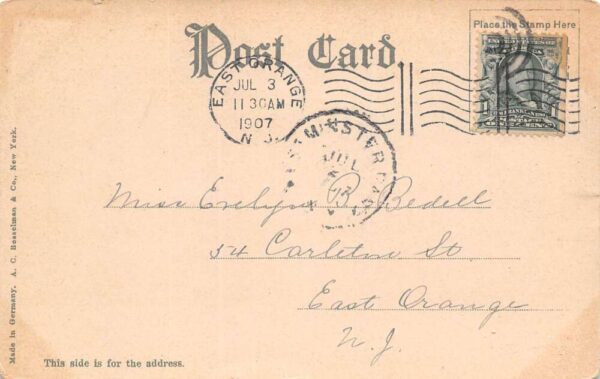 Place the Stamp Here
Post Card
EAST ORANGE
JUL 3
11 30AM
1907
N. J.
MINSTER
JUL
Miss Evelyn B. Bedell
54 Carleton St.
East Orange
N. J.
Made in Germany. A. C. Bosselman & Co., New York.
This side is for the address.